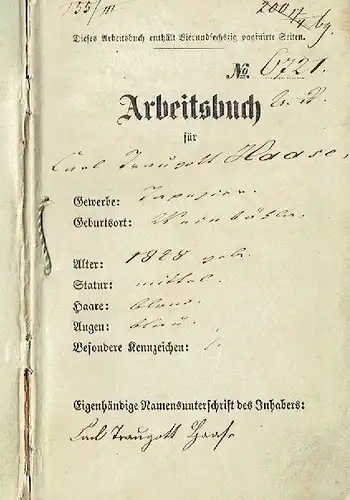 155/III 200 1/4 69.
Dieses Arbeitsbuch enthält Vierundsechszig paginirte Seiten.
No. 6721.
Arbeitsbuch
für
Carl Traugott Haase,
Gewerbe: Tapezier.
Geburtsort: Weinböhla.
Alter: 1828 geb.
Statur: mittel.
Haare: blond.
Augen: blau.
Besondere Kennzeichen: /.
Eigenhändige Namensunterschrift des Inhabers:
Carl Traugott Haase